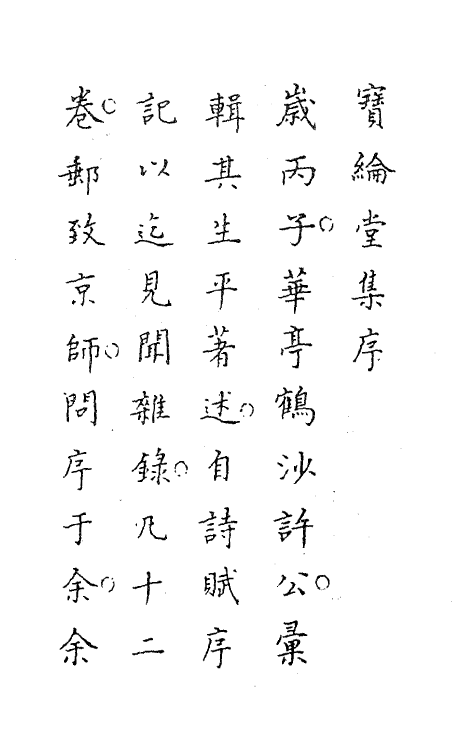 寶綸堂集序
歲丙子○華亭鶴沙許公○彙
輯其生平著述○自詩賦序
記以迄見聞雜錄○凡十二
卷○郵致京師○問序于余○余